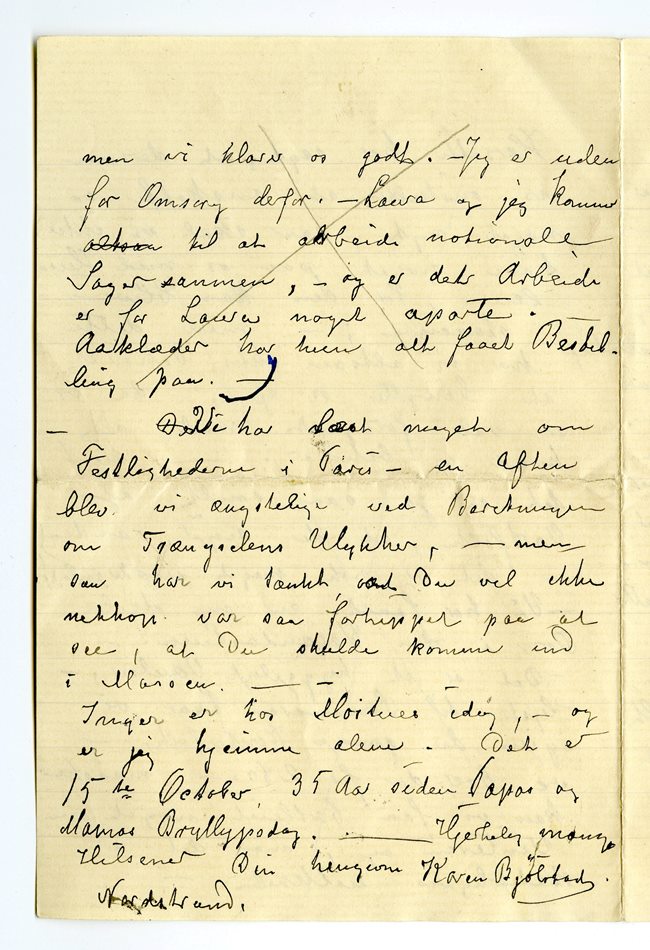 men vi klarer os godt. – Jeg er uden
for Omsorg derfor. – Laura og jeg kommer
altsaa til at arbeide nationale
Sager sammen, – og er dette Arbeide
er for Laura noget aparte.
Aaklæder har hun alt faaet Bestil-
ling paa. —
– Vi har læst meget om
Festlighederne i Paris – en Aften
blev vi ængstelige ved Beretningen
om Trængselens Ulykker, – men
saa har vi tænkt, at Du vel ikke
netop var saa forhippet paa at
see, at Du skulde komme ind
i Massen. — –
Inger er hos idag, – og
er jeg hjemme alene. Det er
15te October, 35 Aar siden Papas og
Mamas Bryllypsdag. — Hjertelig mange
Hilsener Din hengivne Karen Bjølstad.
Nordstrand.